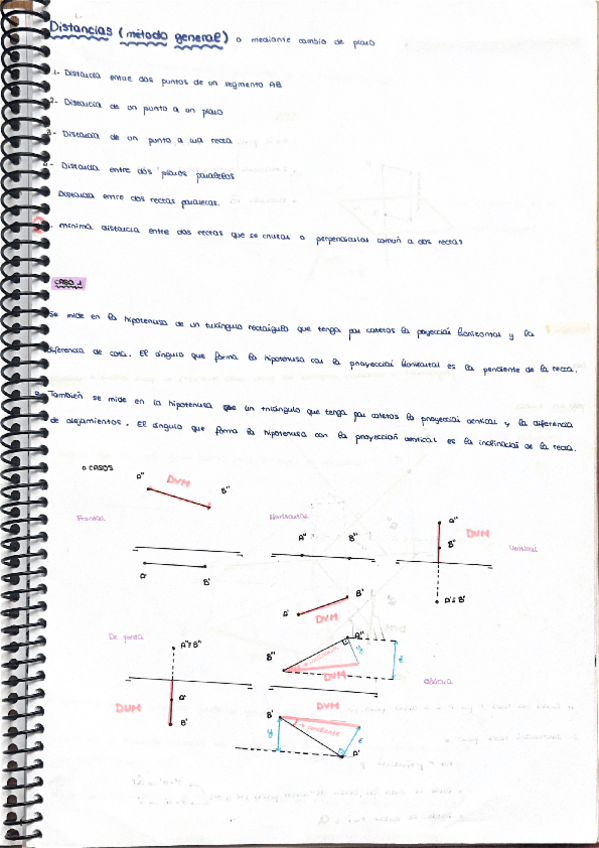 Distancias (método general) o mediante cambio de plano
1- Distancia entre dos puntos de un segmento AB
2- Distancia de un punto a un plano
3- Distancia de un punto a una recta
- Distancia entre dos planos paralelos
Distancia entre dos rectas paralelas.
mínima distancia entre dos rectas que se cruzan o perpendicular común a dos rectas
CASO 1
Se mide en la hipotenusa de un triángulo rectángulo que tenga por catetos la proyección horizontal y la
diferencia de cota. El ángulo que forma la hipotenusa con la proyección horizontal es la pendiente de la recta.
También se mide en la hipotenusa de un triángulo que tenga por catetos la proyección vertical y la diferencia
de alejamientos. El ángulo que forma la hipotenusa con la proyección vertical es la inclinación de la recta.
o CASOS
A'' DVM B''
Frontal
A' B'
Horizontal
A'' B''
A' B'
DVM
A''
B'' DVM
Vertical
A'≡B'
De punta
A''≡B''
A'
DVM
B'
B'' A''
y z
DVM
Oblicua
DVM
B'
pendiente
y z
A'